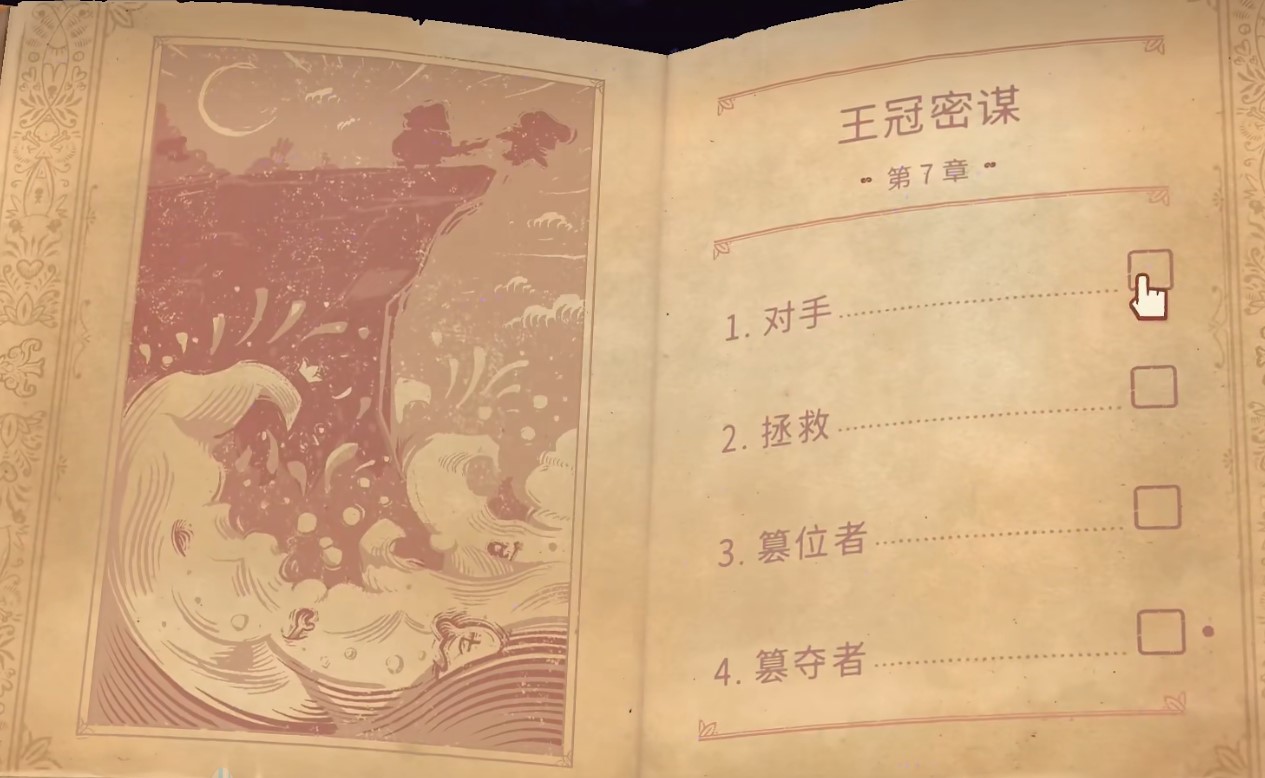 王冠密谋
第7章
1. 对手
2. 拯救
3. 篡位者
4. 篡夺者